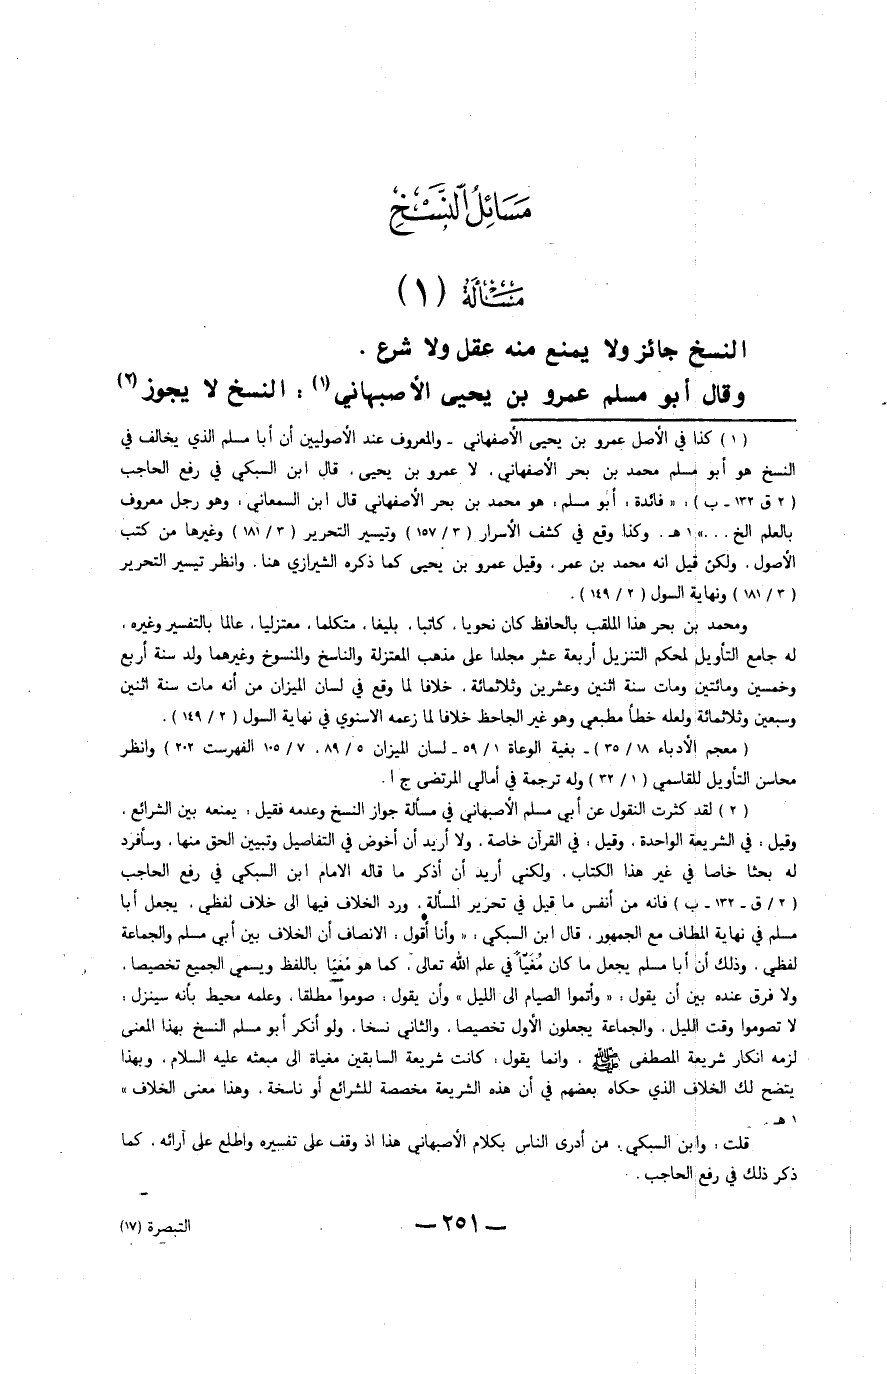 مَسَائِلُ النَّسْخِ
مَسْأَلَة ( ١ )
النسخ جائز ولا يمنع منه عقل ولا شرع .
وقال أبو مسلم عمرو بن يحيى الأصبهاني (١) : النسخ لا يجوز (٢)
( ١ ) كذا في الأصل عمرو بن يحيى الأصفهاني - والمعروف عند الأصوليين أن أبا مسلم الذي يخالف في
النسخ هو أبو مسلم محمد بن بحر الأصفهاني . لا عمرو بن يحيى . قال ابن السبكي في رفع الحاجب
( ٢ ق ١٣٢ - ب ) : « فائدة : أبو مسلم : هو محمد بن بحر الأصفهاني قال ابن السمعاني : وهو رجل معروف
بالعلم الخ . . . » ١ هـ . وكذا وقع في كشف الأسرار ( ٣ / ١٥٧ ) وتيسير التحرير ( ٣ / ١٨١ ) وغيرها من كتب
الأصول . ولكن قيل انه محمد بن عمر . وقيل عمرو بن يحيى كما ذكره الشيرازي هنا . وانظر تيسير التحرير
( ٣ / ١٨١ ) ونهاية السول ( ٢ / ١٤٩ ) .
ومحمد بن بحر هذا الملقب بالحافظ كان نحويا . كاتبا . بليغا . متكلما . معتزليا . عالما بالتفسير وغيره .
له جامع التأويل لمحكم التنزيل أربعة عشر مجلدا على مذهب المعتزلة والناسخ والمنسوخ وغيرهما ولد سنة أربع
وخمسين ومائتين ومات سنة اثنين وعشرين وثلاثمائة . خلافا لما وقع في لسان الميزان من أنه مات سنة اثنين
وسبعين وثلاثمائة ولعله خطأ مطبعي وهو غير الجاحظ خلافا لما زعمه الاسنوي في نهاية السول ( ٢ / ١٤٩ ) .
( معجم الأدباء ١٨ / ٣٥ ) - بغية الوعاة ١ / ٥٩ - لسان الميزان ٥ / ٨٩ . ٧ / ١٠٥ الفهرست ٢٠٢ ) وانظر
محاسن التأويل للقاسمي ( ١ / ٣٢ ) وله ترجمة في أمالي المرتضى ج ١ .
( ٢ ) لقد كثرت النقول عن أبي مسلم الأصبهاني في مسألة جواز النسخ وعدمه فقيل : يمنعه بين الشرائع .
وقيل : في الشريعة الواحدة . وقيل : في القرآن خاصة . ولا أريد أن أخوض في التفاصيل وتبيين الحق منها . وسأفرد
له بحثا خاصا في غير هذا الكتاب . ولكني أريد أن أذكر ما قاله الامام ابن السبكي في رفع الحاجب
( ٢ / ق - ١٣٢ - ب ) فانه من أنفس ما قيل في تحرير المسألة . ورد الخلاف فيها الى خلاف لفظي . يجعل أبا
مسلم في نهاية المطاف مع الجمهور . قال ابن السبكي : « وأنا أقول : الانصاف أن الخلاف بين أبي مسلم والجماعة
لفظي . وذلك أن أبا مسلم يجعل ما كان مُغَيّاً في علم الله تعالى . كما هو مُغَيّا باللفظ ويسمي الجميع تخصيصا .
ولا فرق عنده بين أن يقول : « وأتموا الصيام الى الليل » وأن يقول : صوموا مطلقا . وعلمه محيط بأنه سينزل :
لا تصوموا وقت الليل . والجماعة يجعلون الأول تخصيصا . والثاني نسخا . ولو أنكر أبو مسلم النسخ بهذا المعنى
لزمه انكار شريعة المصطفى ﷺ . وانما يقول : كانت شريعة السابقين مغياة الى مبعثه عليه السلام . وبهذا
يتضح لك الخلاف الذي حكاه بعضهم في أن هذه الشريعة مخصصة للشرائع أو ناسخة . وهذا معنى الخلاف »
١ هـ .
قلت : وابن السبكي . من أدرى الناس بكلام الأصبهاني هذا اذ وقف على تفسيره واطلع على آرائه . كما
ذكر ذلك في رفع الحاجب .
— ٢٥١ —
التبصرة (١٧)